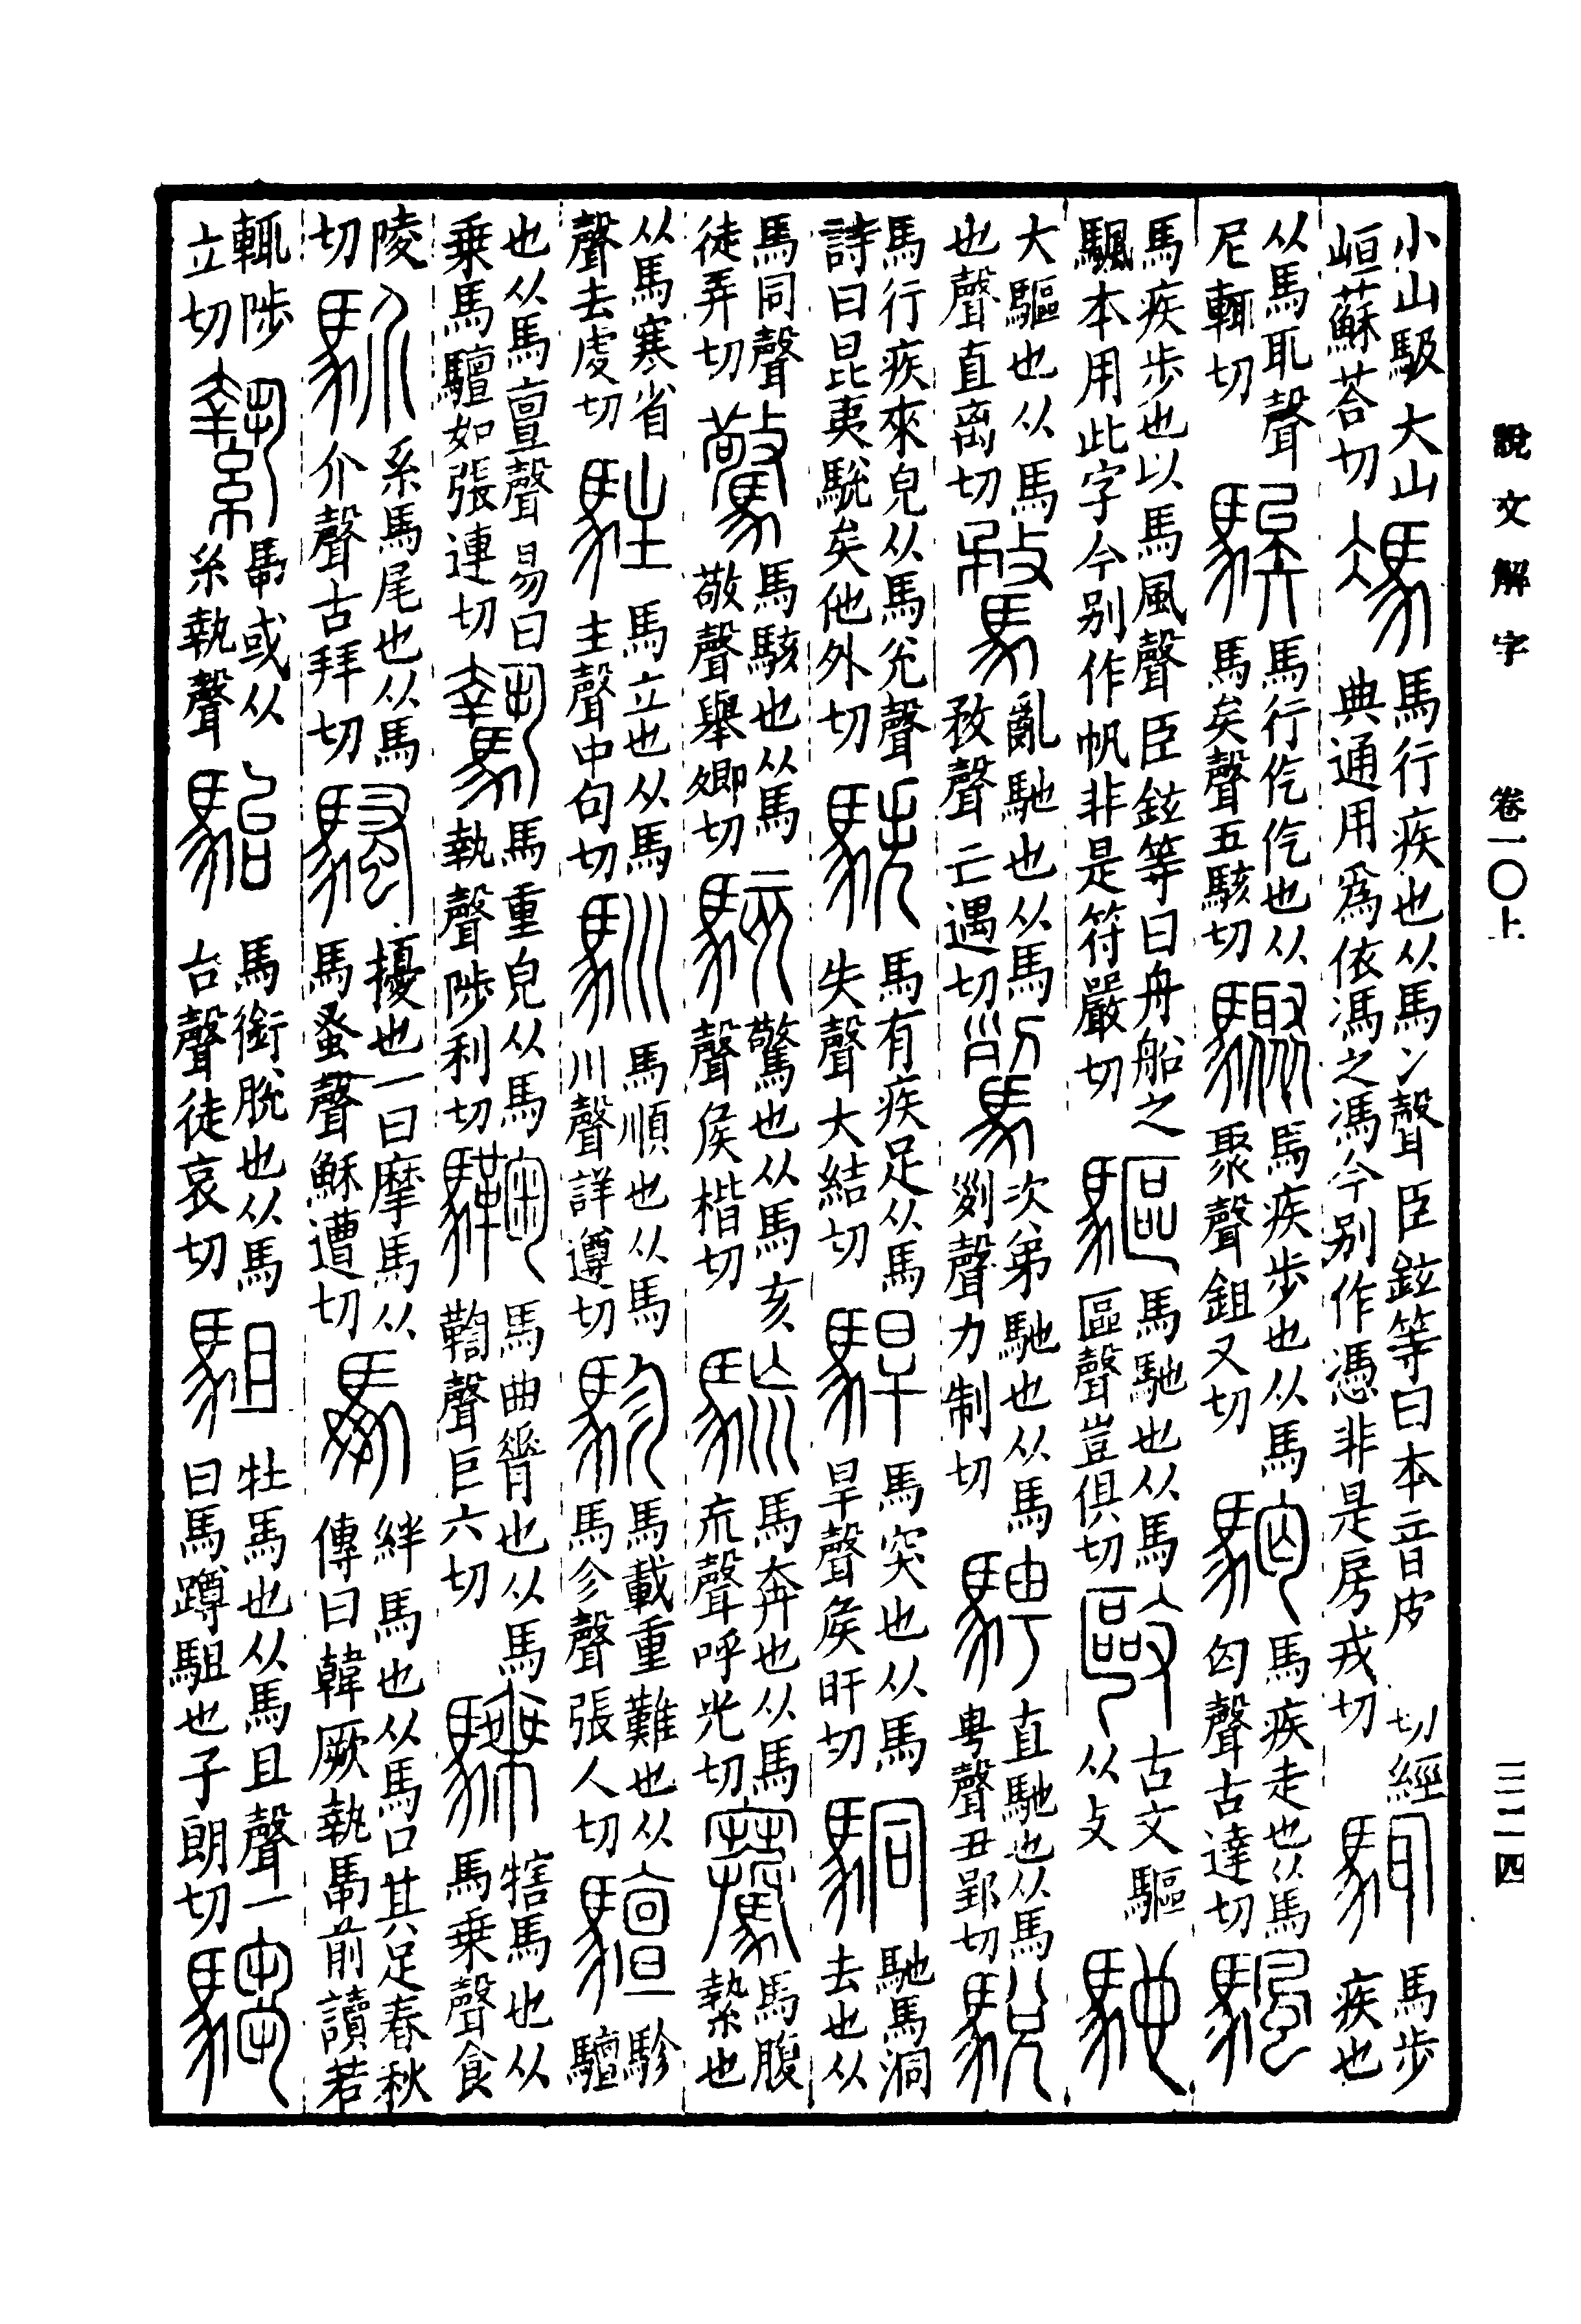 說文解字 卷一〇上 三二四
小山馺大山峘蘇荅切 馮 馬行疾也从馬冫聲臣鉉等曰本音皮 切經典通用爲依馮之馮今别作憑非是房戎切 馬步疾也
从馬耴聲尼輒切 騃 馬行仡仡也从馬矣聲五駭切 驟 馬疾步也从馬聚聲鉏又切 馬疾走也从馬匃聲古達切 颿
馬疾步也以馬風聲臣鉉等曰舟船之颿本用此字今别作帆非是符嚴切 驅 馬馳也从馬區聲豈俱切 敺 古文驅从攴 馳
大驅也从馬也聲直离切 騖 亂馳也从馬敄聲亡遇切 次弟馳也从馬㓝聲力制切 騁 直馳也从馬甹聲丑郢切 駾
馬行疾來皃从馬兊聲詩曰昆夷駾矣他外切 䭿 馬有疾足从馬失聲大結切 駻 馬突也从馬旱聲矦旰切 駧 馳馬洞去也从
馬同聲徒弄切 驚 馬駭也从馬敬聲舉卿切 駭 驚也从馬亥聲矦楷切 馬奔也从馬巟聲呼光切 騫 馬腹縶也
从馬寒省聲去虔切 駐 馬立也从馬主聲中句切 馴 馬順也从馬川聲詳遵切 駗 馬載重難也从馬㐱聲張人切 驙 駗驙
也从馬亶聲易曰乗馬驙如張連切 騺 馬重皃从馬執聲陟利切 馬曲脊也从馬鞫聲巨六切 騬 犗馬也从馬乗聲食
陵切 系馬尾也从馬介聲古拜切 騷 擾也一曰摩馬从馬蚤聲穌遭切 馽 絆馬也从馬囗其足春秋傳曰韓厥執馽前讀若
輒陟立切 縶 馽或从糸執聲 駘 馬銜脫也从馬台聲徒哀切 駔 牡馬也从馬且聲一曰馬蹲駔也子朗切 騶